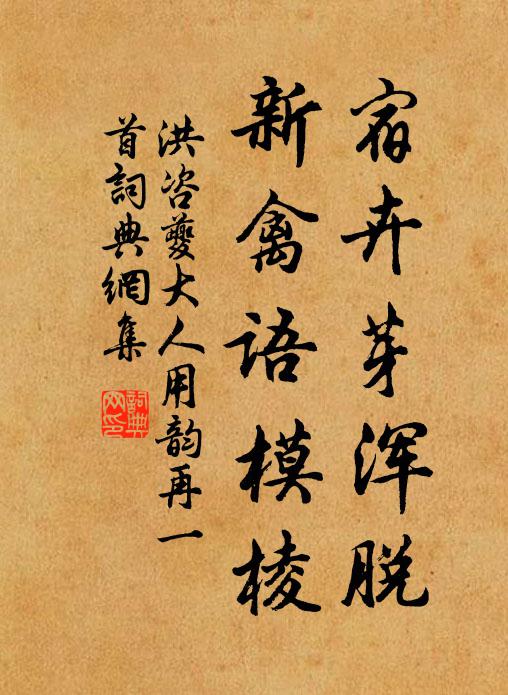 宿卉芽渾脱
新禽語模棱
洪咨夔大人用韵再一
首詞典網集
詞典
网印